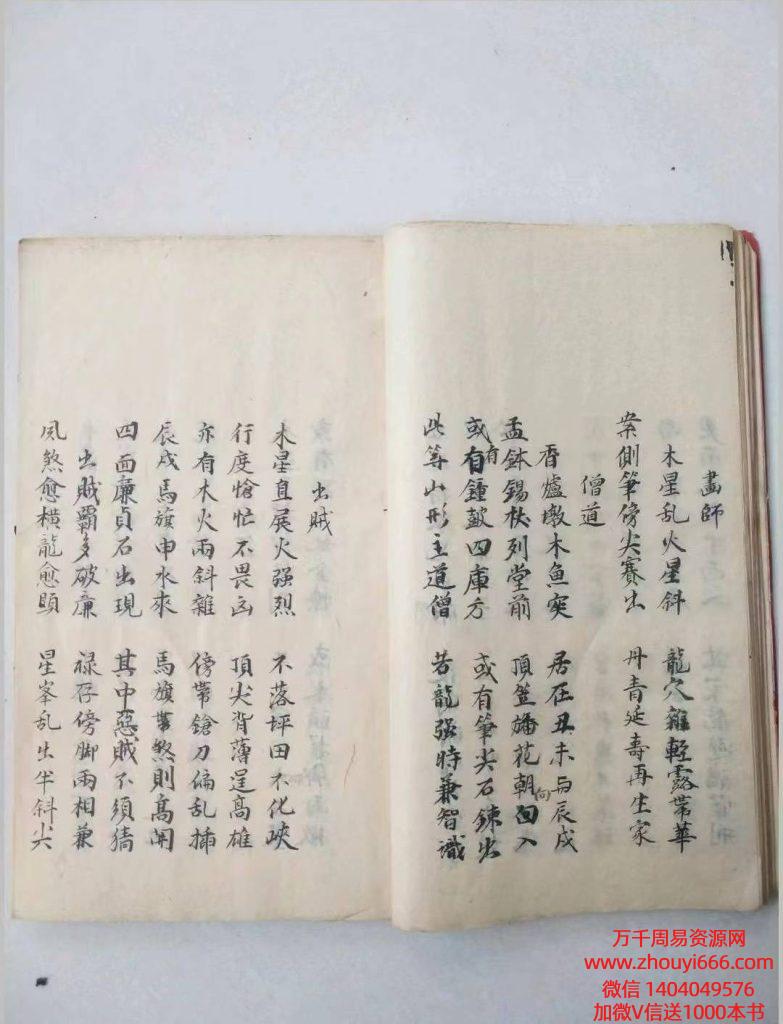 畫師
木星乱火星斜　龍穴雖輕露帶華
案側筆傍尖賽出　丹青延壽再生家
僧道
香爐墩木魚突　居在丑未与辰戌
盂鉢錫杖列堂前　頂笠旛花朝向回入
或有鍾皷四庫方　或有筆尖石鍊出
此等山形主道僧　若龍强時兼智識
出賊
木星直展火强烈　不落坪田不化峽
行度愴忙不畏凶　頂尖背薄逞高雄
亦有木火兩斜雜　傍帶鎗刀偏乱插
辰戌馬旗申水來　馬旗帶煞則高開
四面廉貞石出現　其中惡賊不須猜
出賊霸多破廉　祿存傍脚兩相兼
風煞愈橫龍愈顕　星峯乱出半斜尖
万千周易资源网
www.zhouyi666.com
微信 1404049576
加微V信送1000本书